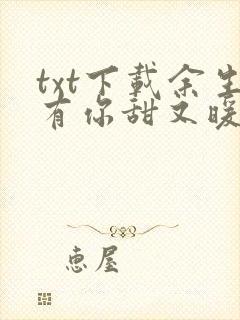 txt下載余生
有你甜又暖
惠屋